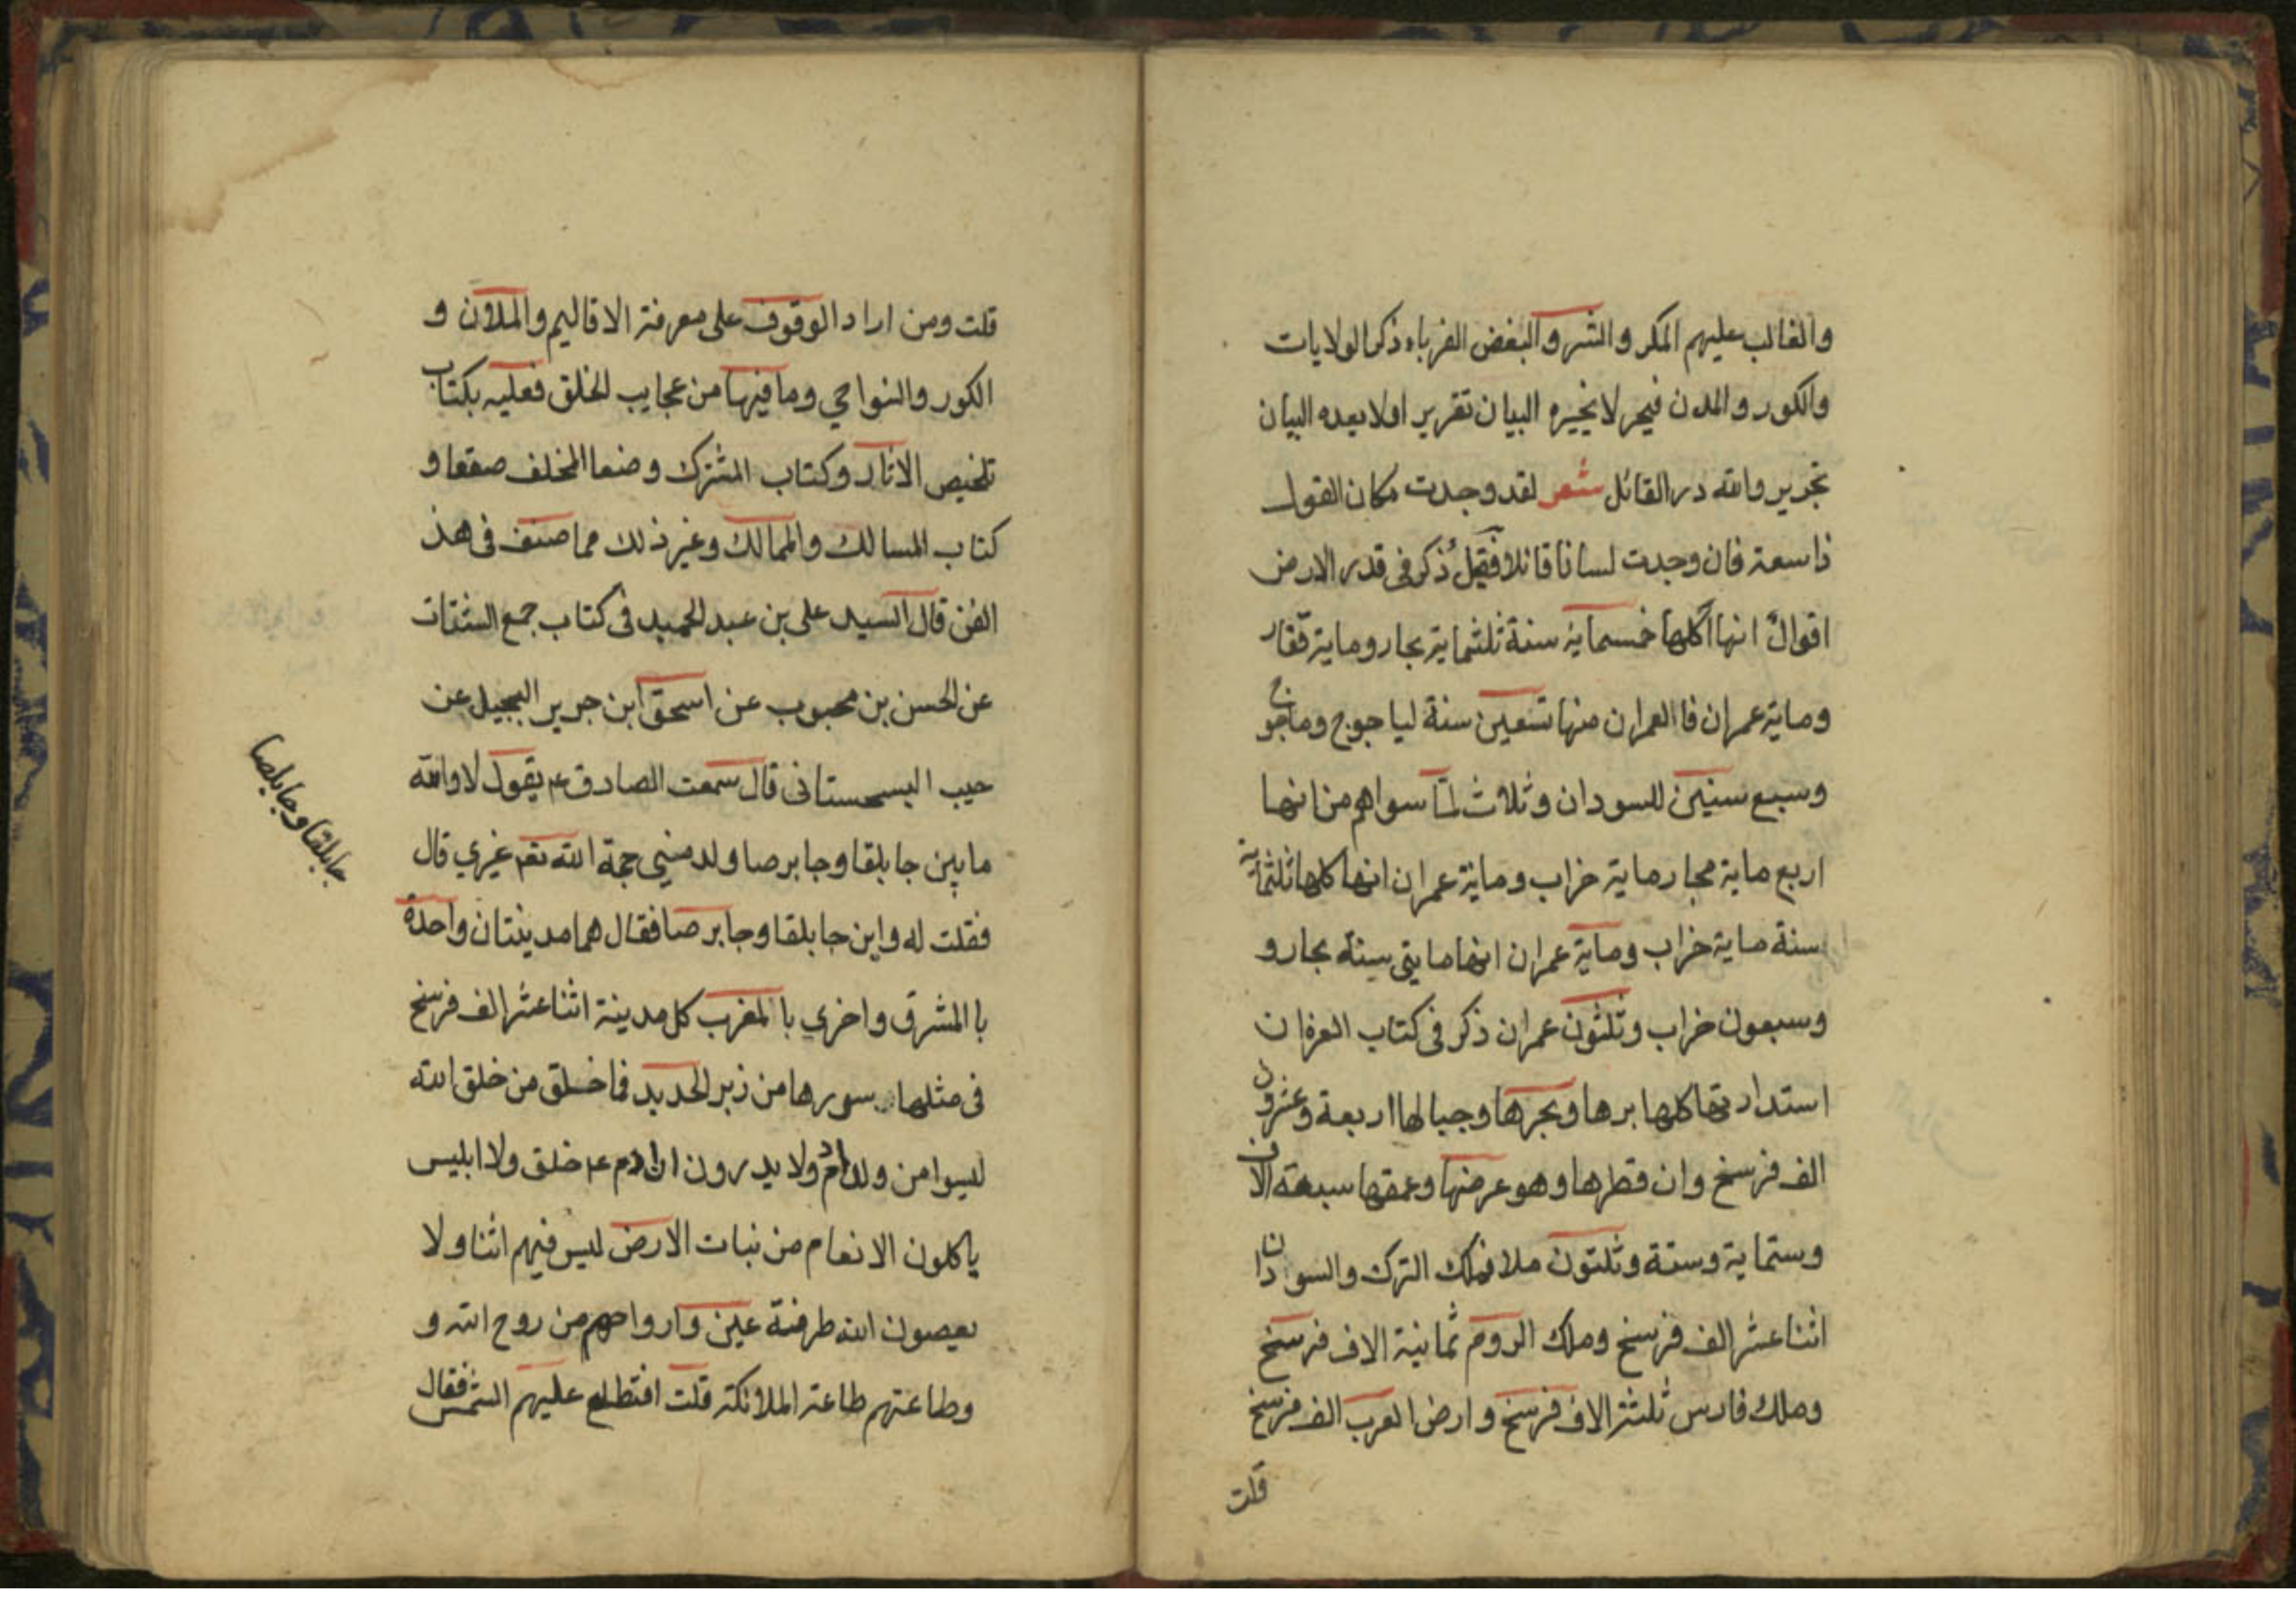 والغالب عليهم المكر والشر والبغض الغرباء ذكر الولايات
والكور والمدن فيحر لا يخيره البيان تقرير اولا بعده البيان
تحرير والله در القائل شعر لقد وجدت مكان القول
ذا سعة فان وجدت لسانا قائلا فقيل ذكر فى قدر الارض
اقوال انها اكلها خمسماية سنة ثلثماية بحار وماية قفار
وماية عمران فا العمران منها تسعين سنة لياجوج وماجوج
وسبع سنين للسودان وثلاث لما سواهم من انها
اربع ماية مجار ماية خراب وماية عمران انها كلها ثلثماية
سنة ماية خراب وماية عمران انها مايتى سنة بحار و
وسبعون خراب وثلثون عمران ذكر فى كتاب
استدارتها كلها برها وبحرها وجبالها اربعة وعشرون
الف فرسخ وان قطرها وهو عرضها وعمقها سبعة الاف
وستماية وستة وثلثون ملا فملك الترك والسودان
اثنا عشر الف فرسخ وملك الروم ثمانية الاف فرسخ
وملك فارس ثلثة الاف فرسخ وارض العرب الف فرسخ
قلت
قلت ومن اراد الوقوف على معرفة الاقاليم والمدن و
الكور والنواحي وما فيها من عجايب الخلق فعليه بكتاب
تلخيص الاثار وكتاب المشترك وضعا المختلف صقعا و
كتاب المسالك والممالك وغير ذلك مما صنف فى هذ
الفن قال السيد على بن عبد الحميد فى كتاب جمع الشتات
عن الحسن بن محبوب عن اسحق ابن جرير البجيل عن
حبيب السجستانى قال سمعت الصادق ع يقول لا والله
ما بين جابلقا وجابرصا ولد منبي حجة الله تعم غيري قال
فقلت له واين جابلقا وجابرصا فقال هما مدينتان واحدة
با المشرق واخري با المغرب كل مدينة اثنا عشر الف فرسخ
فى مثلها سورها من زبر الحديد فما خلق من خلق الله
ليسوا من ولد ادم ولا يدرون ان ادم ع خلق ولا ابليس
ياكلون الانعام من نبات الارض ليس فيهم اثنا ولا
يعصون الله طرفة عين وارواحهم من روح الله و
وطاعتهم طاعة الملائكة قلت افتطلع عليهم الشمس فقال
جابلقا وجابلصا